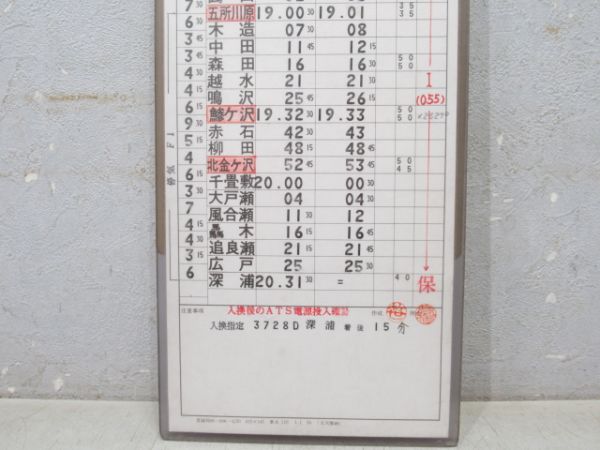 7 30 35
五所川原 19.00 30 19.01 35
6 木造 07 30 08
3 45 中田 11 45 12 15
3 45 森田 16 16 30 50 50
6 越水 21 21 30
4 45 鳴沢 25 45 26 15 (055)
6 鰺ケ沢 19.32 30 19.33 50 50
9 赤石 42 30 43
5 15 柳田 48 15 48 45
4 北金ケ沢 52 45 53 45 50 45
6 15 千畳敷 20.00 00 30
3 30 大戸瀬 04 04 30
7 風合瀬 11 30 12
4 15 驫木 16 15 16 45
4 30 追良瀬 21 15 21 45
3 15 広戸 25 25 30
6 深浦 20.31 30 = 40 保
注意事項 入換後のATS電源投入確認 作成
入換指定 3728D 深浦 着後 15分